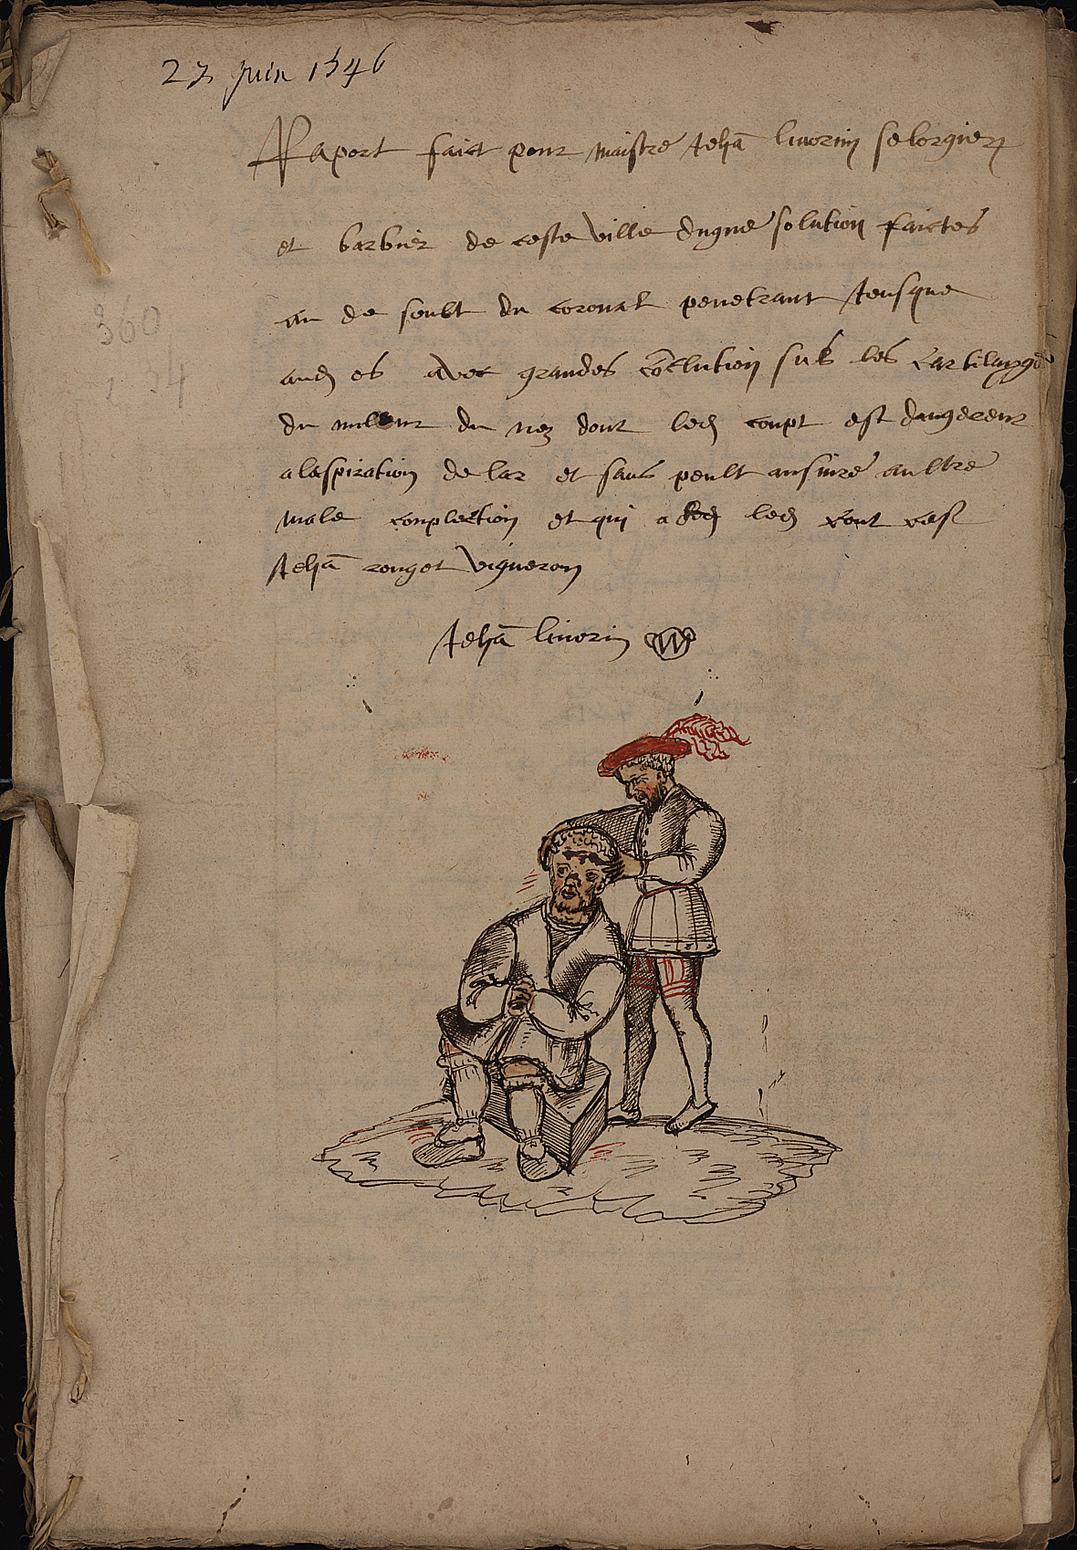 27 Juin 1546
Raport faict pour maistre Jehã Livorin selorgien
et barbier de ceste ville dugne solution faictes
au de seubt du coronal penetrant Jeusque
aud os avec grandes cõclution sus les cartilaige
du milleur du nez dont led coupt est dangereur
a laspiration de lar et saus peult ansuire aultre
male conplection et qui a led cout cest
Jehã rouget vigneron
Jehã Livorin
360
54